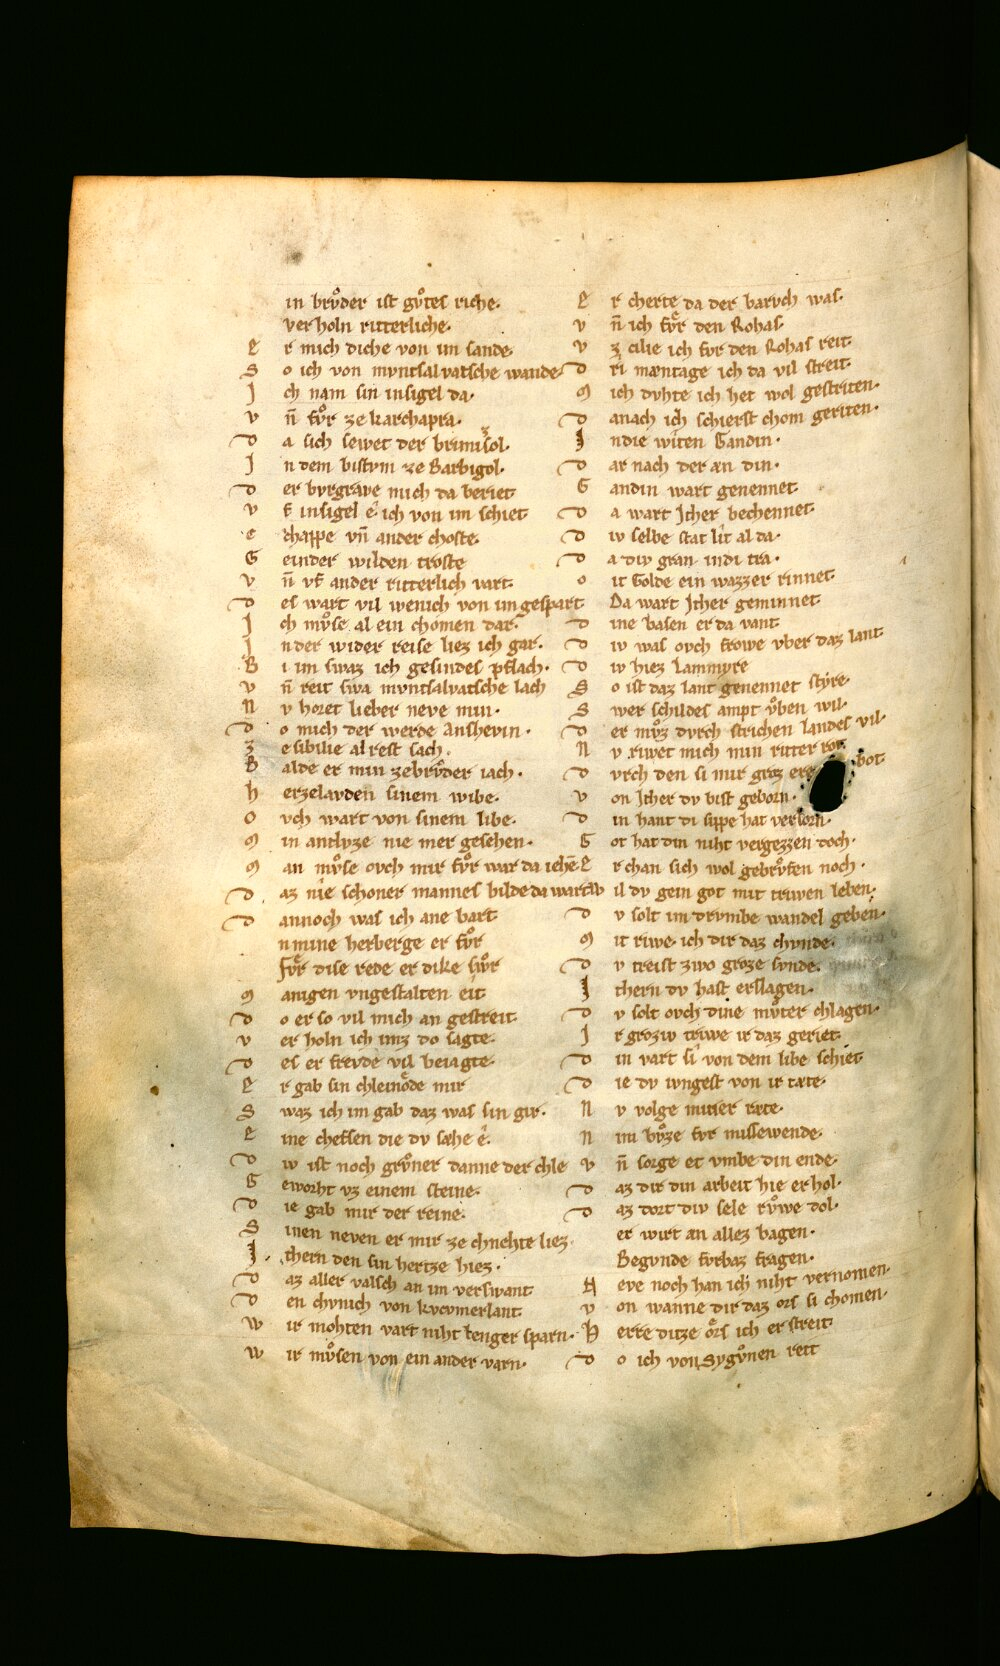 in brůder ist gůtes riche.
verholn ritterliche.
Er mich diche von im sande
So ich von mvntsalvatsche wande
Ich nam sin insigel da.
vn̄ fůr ze karchapra.
Da sich sewet der brimizol.
In dem bistvm ze Barbigol.
Der bvrgrave mich da beriet
vf insigel ê ich von im schiet
chappe vn̄ ander choste.
Geinder wilden troste
vn̄ vf ander ritterlich vart.
Des wart vil wenich von im gespart
Ich mv̊se al ein chomen dar.
In der wider reise liez ich gar.
Bi im swaz ich gesindes pflach.
vn̄ reit swa mvntsalvatsche lach
Nv horet lieber neve min.
Do mich der werde Anshevin.
Ze sibilie alrest sach.
Balde er min zebrůder iach.
herzelavden sinem wibe.
Ovch wart von sinem libe.
Min antlvze nie mer gesehen.
Man mv̊se ovch mir fůr war da iehē
Daz nie schoner mannes bilde da wart
Dannoch was ich ane bart
n mine herberge er fůr
Fvr dise rede er dike swůr
Manigen vngestalten eit
Do er so vil mich an gestreit.
verholn ich imz do sagte.
Des er frevde vil beiagte.
Er gab sin chleinode mir
Swaz ich im gab daz was sin gir.
Eine cheffsen die dv sæhe ê.
Div ist noch grůner danne der chle
Geworht vz einem steine.
Die gab mir der reine.
Sinen neven er mir ze chnehte liez
Ithern den sin hertze hiez.
Daz aller valsch an im verswant
Den chvnich von kvcvmerlant.
Wir mohten vart niht lenger sparn.
Wir mv̊sen von ein ander varn.
Er cherte da der barvch was.
vn̄ ich fůr den Rohas.
vz cilie ich fvr den Rohas reit
Dri mæntage ich da vil streit.
Mich dvhte ich het wol gestriten.
Danach ich schierst chom geriten.
In die witen Gandin.
Dar nach der æn din.
Gandin wart genennet
Da wart Ither bechennet
Div selbe stat lît al da.
Da div gran in di tra.
Mit Golde ein wazzer rinnet
Da wart Ither geminnet
Dine basen er da vant
Div was ovch frowe vber daz lant
Div hiez Lammyre
So ist daz lant genennet styre.
Swer schildes ampt v̊ben wil.
Der mv̊z dvrch strichen landes vil.
Nv riwet mich min ritter rot.
Dvrch den si mir groz ere bot
von Ither dv bist geborn.
Din hant di sippe hat verlorn.
Got hat din niht vergezzen doch.
Er chan sich wol gebrv̊fen noch.
Wil dv gein got mit triwen leben.
Dv solt im drvmbe wandel geben.
Mit riwe ich dir daz chvnde.
Dv treist zwo groze svnde.
Ithern dv hast erslagen.
Dv solt ovch dine mv̊ter chlagen.
Ir groziv triwe ir daz geriet.
Din vart si von dem libe schiet
Die dv ivngest von ir tæte.
Nv volge miner ræte.
Nim bv̊ze fvr missewende.
vn̄ sorge et vmbe din ende.
Daz dir din arbeit hie erhol.
Daz dort div sele rv̊we dol.
er wirt æn allez bagen.
Begvnde fvrbaz fragen.
Neve noch han ich niht vernomen.
von wanne dir daz ors si chomen.
Herre ditze ors ich erstreit
Do ich von Sygv̊nen reit